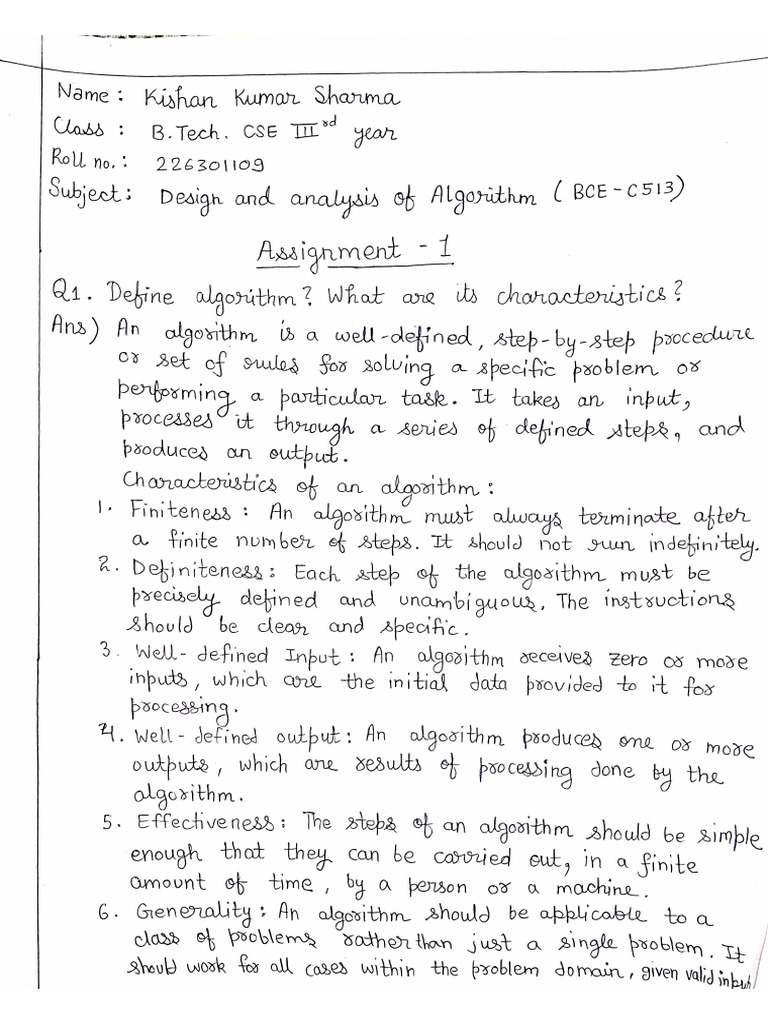 Name : Kishan Kumar Sharma
Class : B.Tech. CSE IIIrd year
Roll no. : 226301109
Subject : Design and analysis of Algorithm ( BCE - C513)
Assignment - 1
Q1. Define algorithm? What are its characteristics?
Ans) An algorithm is a well-defined, step-by-step procedure
or set of rules for solving a specific problem or
performing a particular task. It takes an input,
processes it through a series of defined steps, and
produces an output.
Characteristics of an algorithm :
1. Finiteness : An algorithm must always terminate after
a finite number of steps. It should not run indefinitely.
2. Definiteness : Each step of the algorithm must be
precisely defined and unambiguous. The instructions
should be clear and specific.
3. Well-defined Input : An algorithm receives zero or more
inputs, which are the initial data provided to it for
processing.
4. Well-defined output : An algorithm produces one or more
outputs, which are results of processing done by the
algorithm.
5. Effectiveness : The steps of an algorithm should be simple
enough that they can be carried out, in a finite
amount of time, by a person or a machine.
6. Generality : An algorithm should be applicable to a
class of problems rather than just a single problem. It
should work for all cases within the problem domain, given valid input